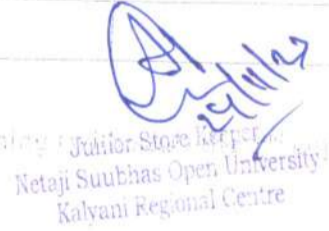 29/11/23
Junior Store Keeper
Netaji Suubhas Open University
Kalyani Regional Centre